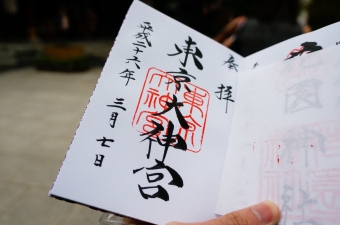 奉拝
東京大神宮
平成二十六年三月七日
東京大神宮